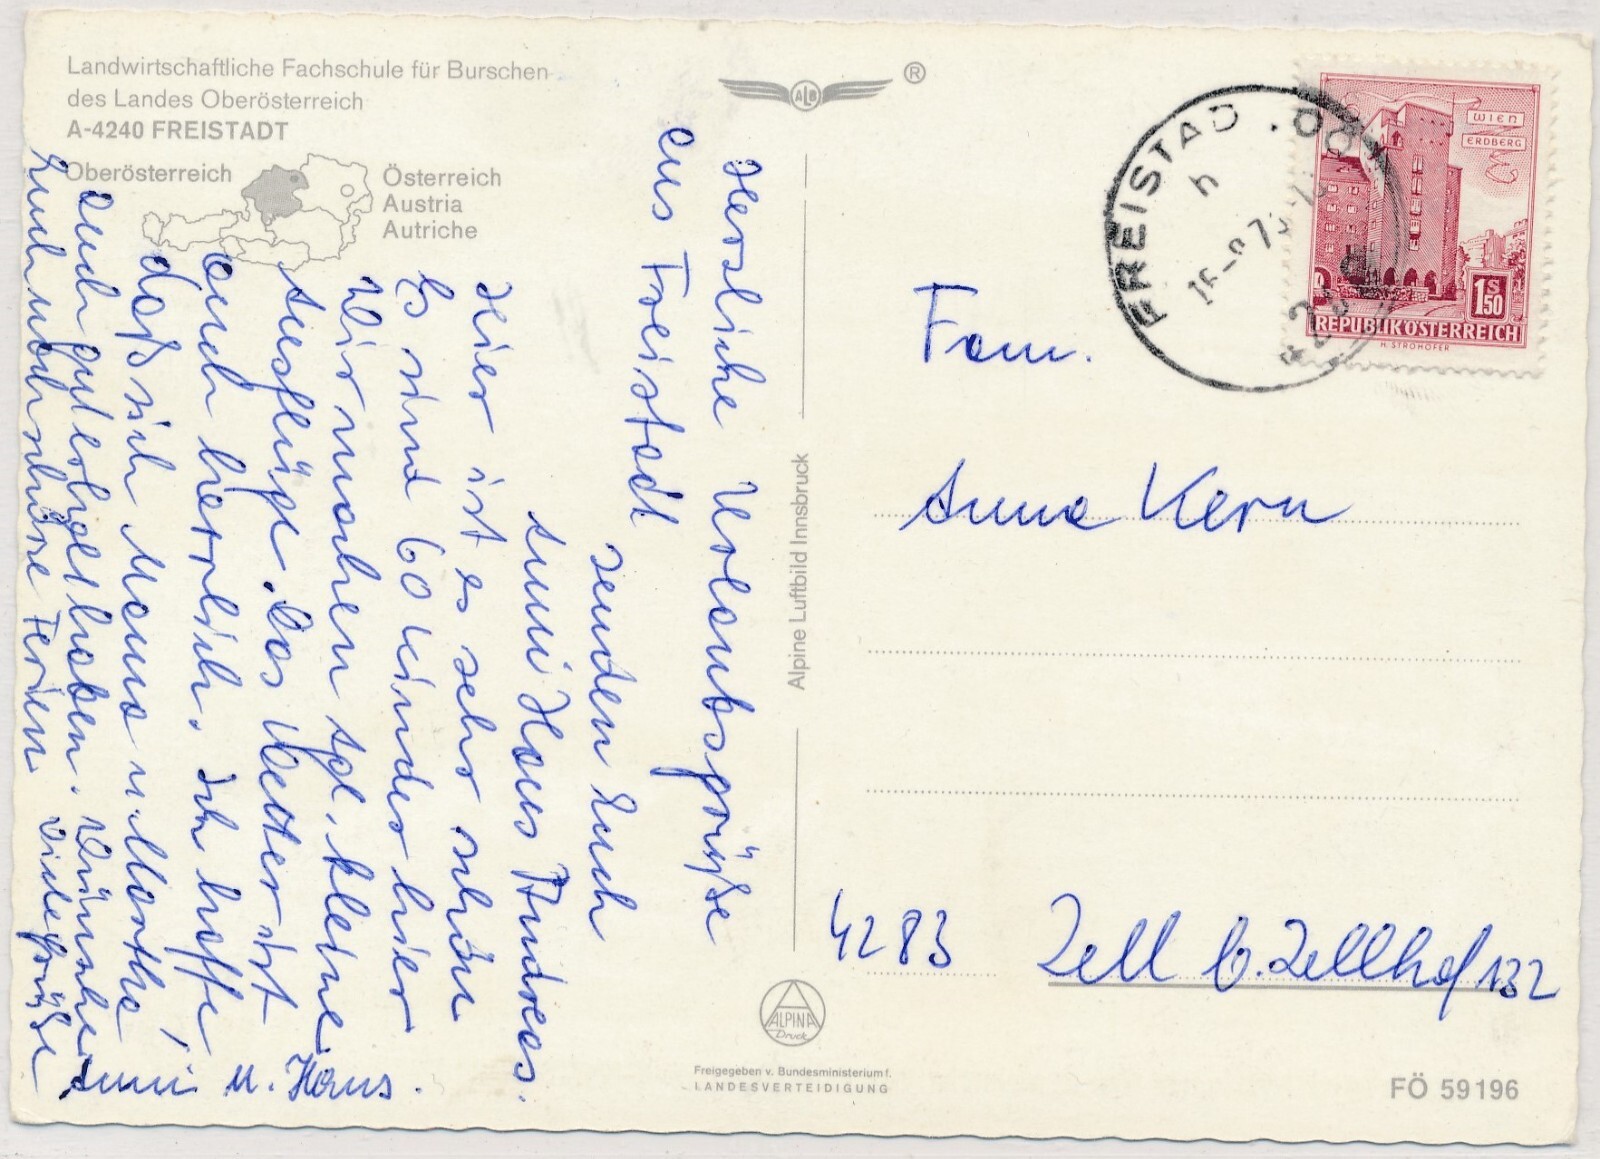 Landwirtschaftliche Fachschule für Burschen
des Landes Oberösterreich
A-4240 FREISTADT
Oberösterreich
Österreich
Austria
Autriche
ALB
®
Herzliche Urlaubsgrüße
aus Freistadt
senden Euch
Anni Hans Andreas.
Hier ist es sehr schön
Es sind 60 Kinder hier
Wir machen tgl. kleine
Ausflüge. Das Wetter ist
auch herrlich. Ich hoffe
daß sich Mama u. Martha
auch gut erholt haben. Wünsche
Euch noch schöne Ferien Viele Grüße
Anni u. Hans.
Alpine Luftbild Innsbruck
ALPINA
Druck
Freigegeben v. Bundesministerium f.
LANDESVERTEIDIGUNG
FREISTADT, OÖ
h
WIEN
ERDBERG
1S50
REPUBLIK ÖSTERREICH
H. STROHOFER
Fam.
Anna Kern
4283 Zell b. Zellhof 132
FÖ 59196